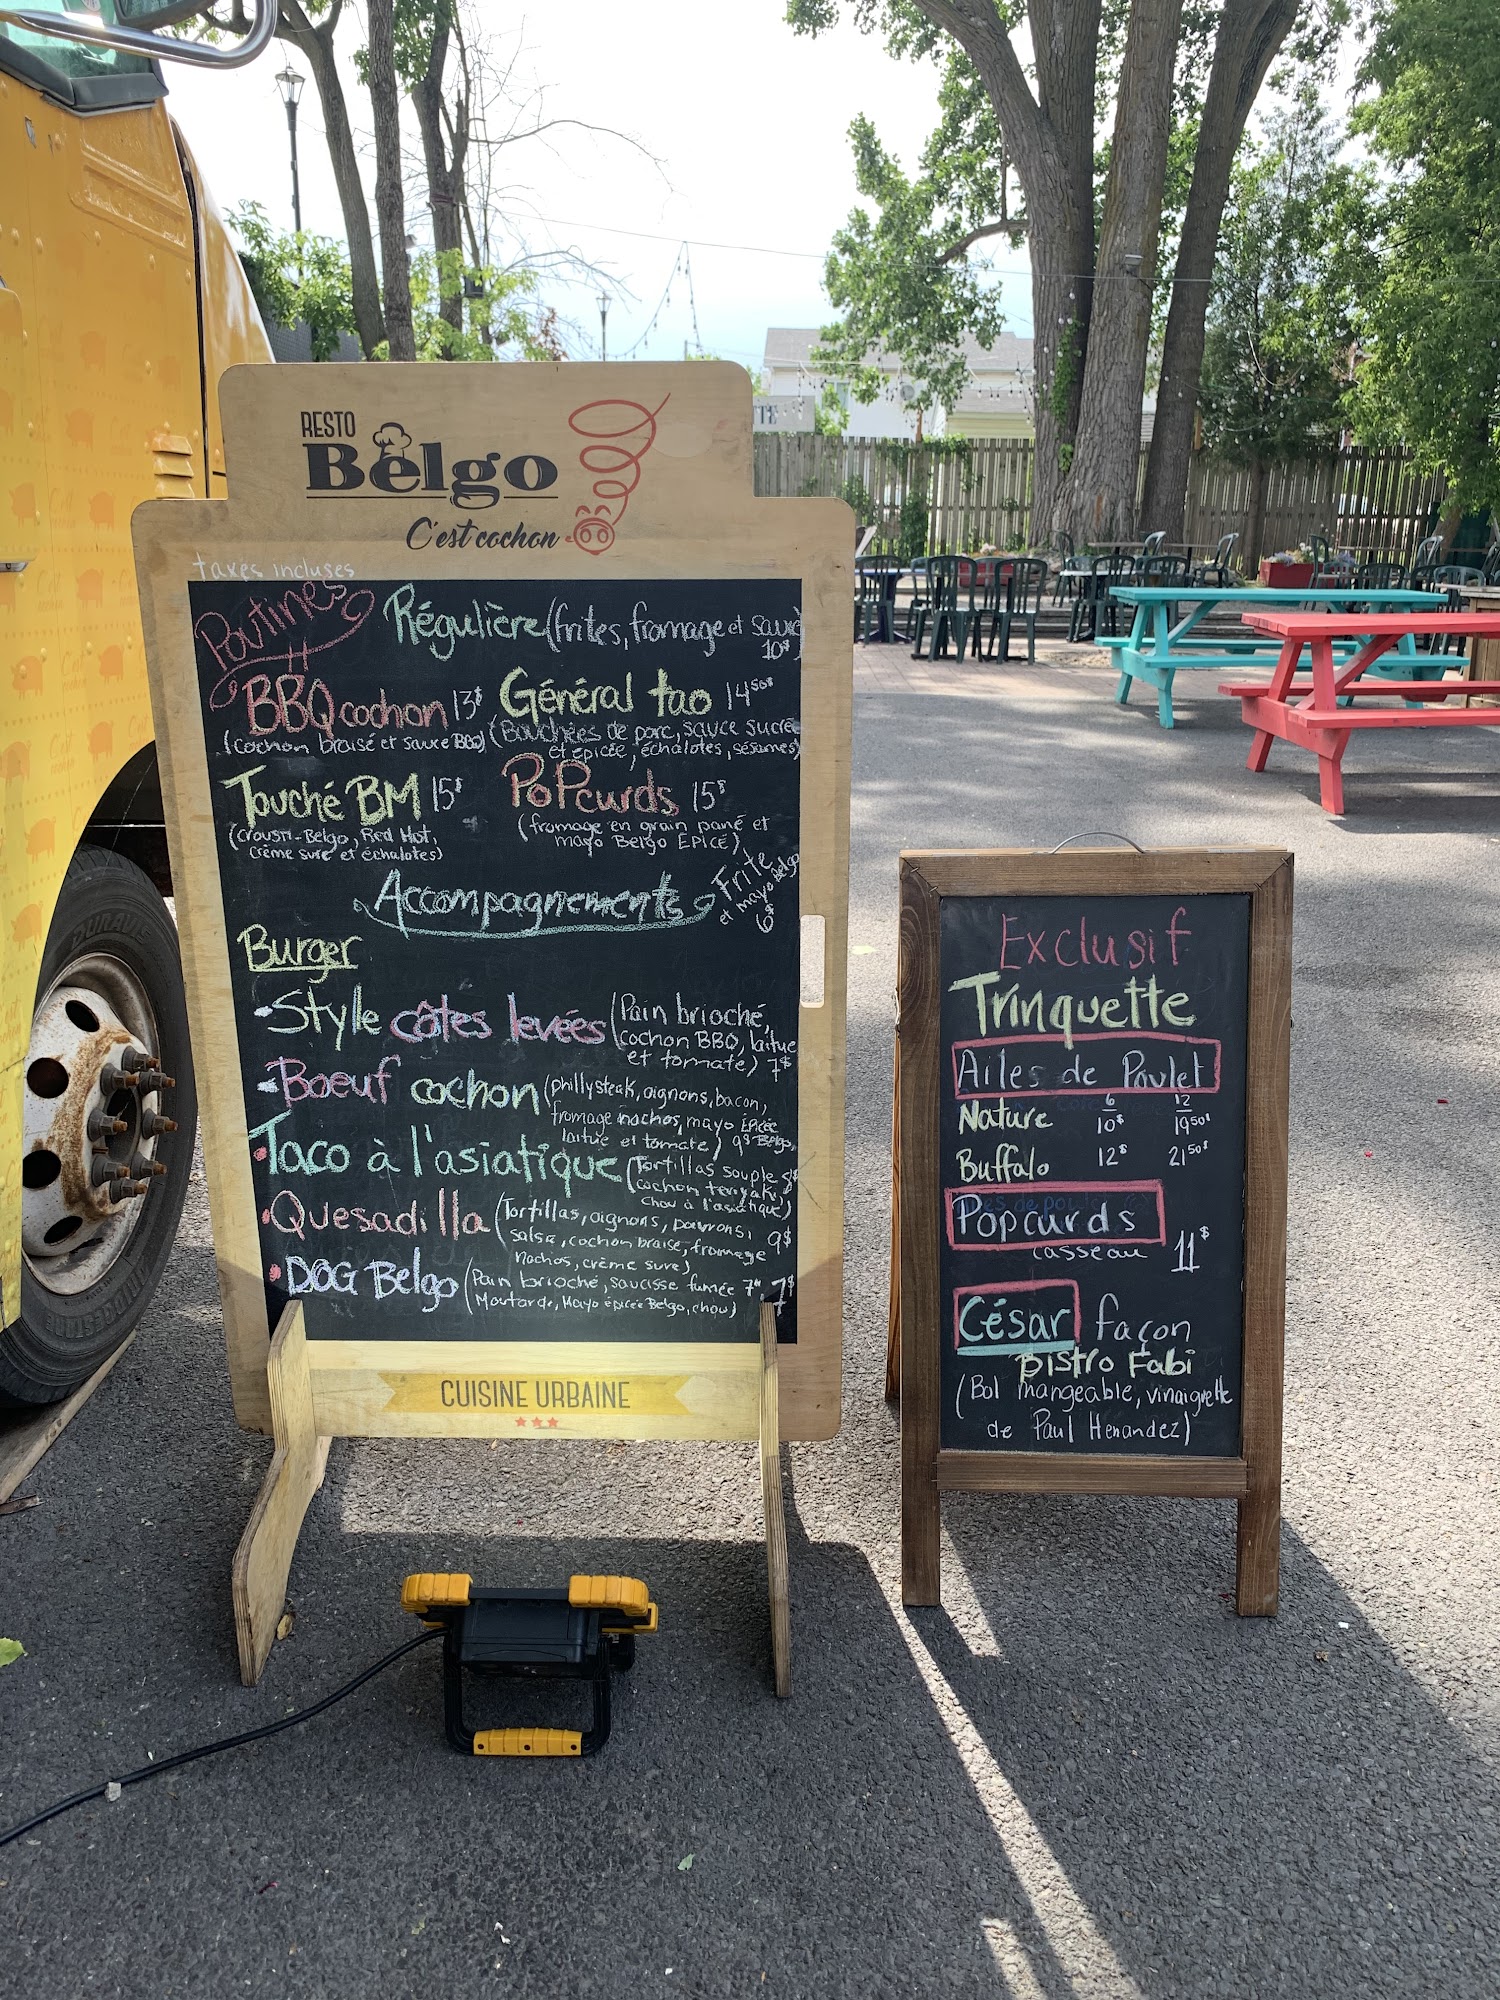 RESTO
Belgo
C'est cochon
taxes incluses
Poutines
Régulière (frites, fromage et sauce
10$)
BBQ cochon 13$
(cochon braisé et sauce BBQ)
Général tao 14 50$
(Bouchées de porc, sauce sucrée
et épicée, échalotes, sésames)
Touché BM 15$
(crousti-Belgo, Red Hot,
crème sure et échalotes)
PoPcurds 15$
(fromage en grain pané et
mayo Belgo ÉPICÉ)
Accompagnements
Frite
et mayo Belgo
6$
Burger
-Style côtes levées (Pain brioché,
cochon BBQ, laitue
et tomate) 7$
-Boeuf cochon (phillysteak, oignons, bacon,
fromage nachos, mayo Épicée
laitue et tomate) 9$ Belgo,
Taco à l'asiatique (Tortillas souple 8$
cochon teriyaki,
chou à l'asiatique)
Quesadilla (Tortillas, oignons, poivrons,
salsa, cochon braisé, fromage 9$
Nachos, crème sure)
DOG Belgo (Pain brioché, saucisse fumée 7", 7$
Moutarde, Mayo épicée Belgo, chou)
CUISINE URBAINE
Exclusif
Trinquette
Ailes de Poulet
6 12
Nature 10$ 19 50$
Buffalo 12$ 21 50$
Popcurds
casseau 11$
César façon
Bistro Fabi
(Bol mangeable, vinaigrette
de Paul Henandez)
DURAVIS
BRIDGESTONE
TTE